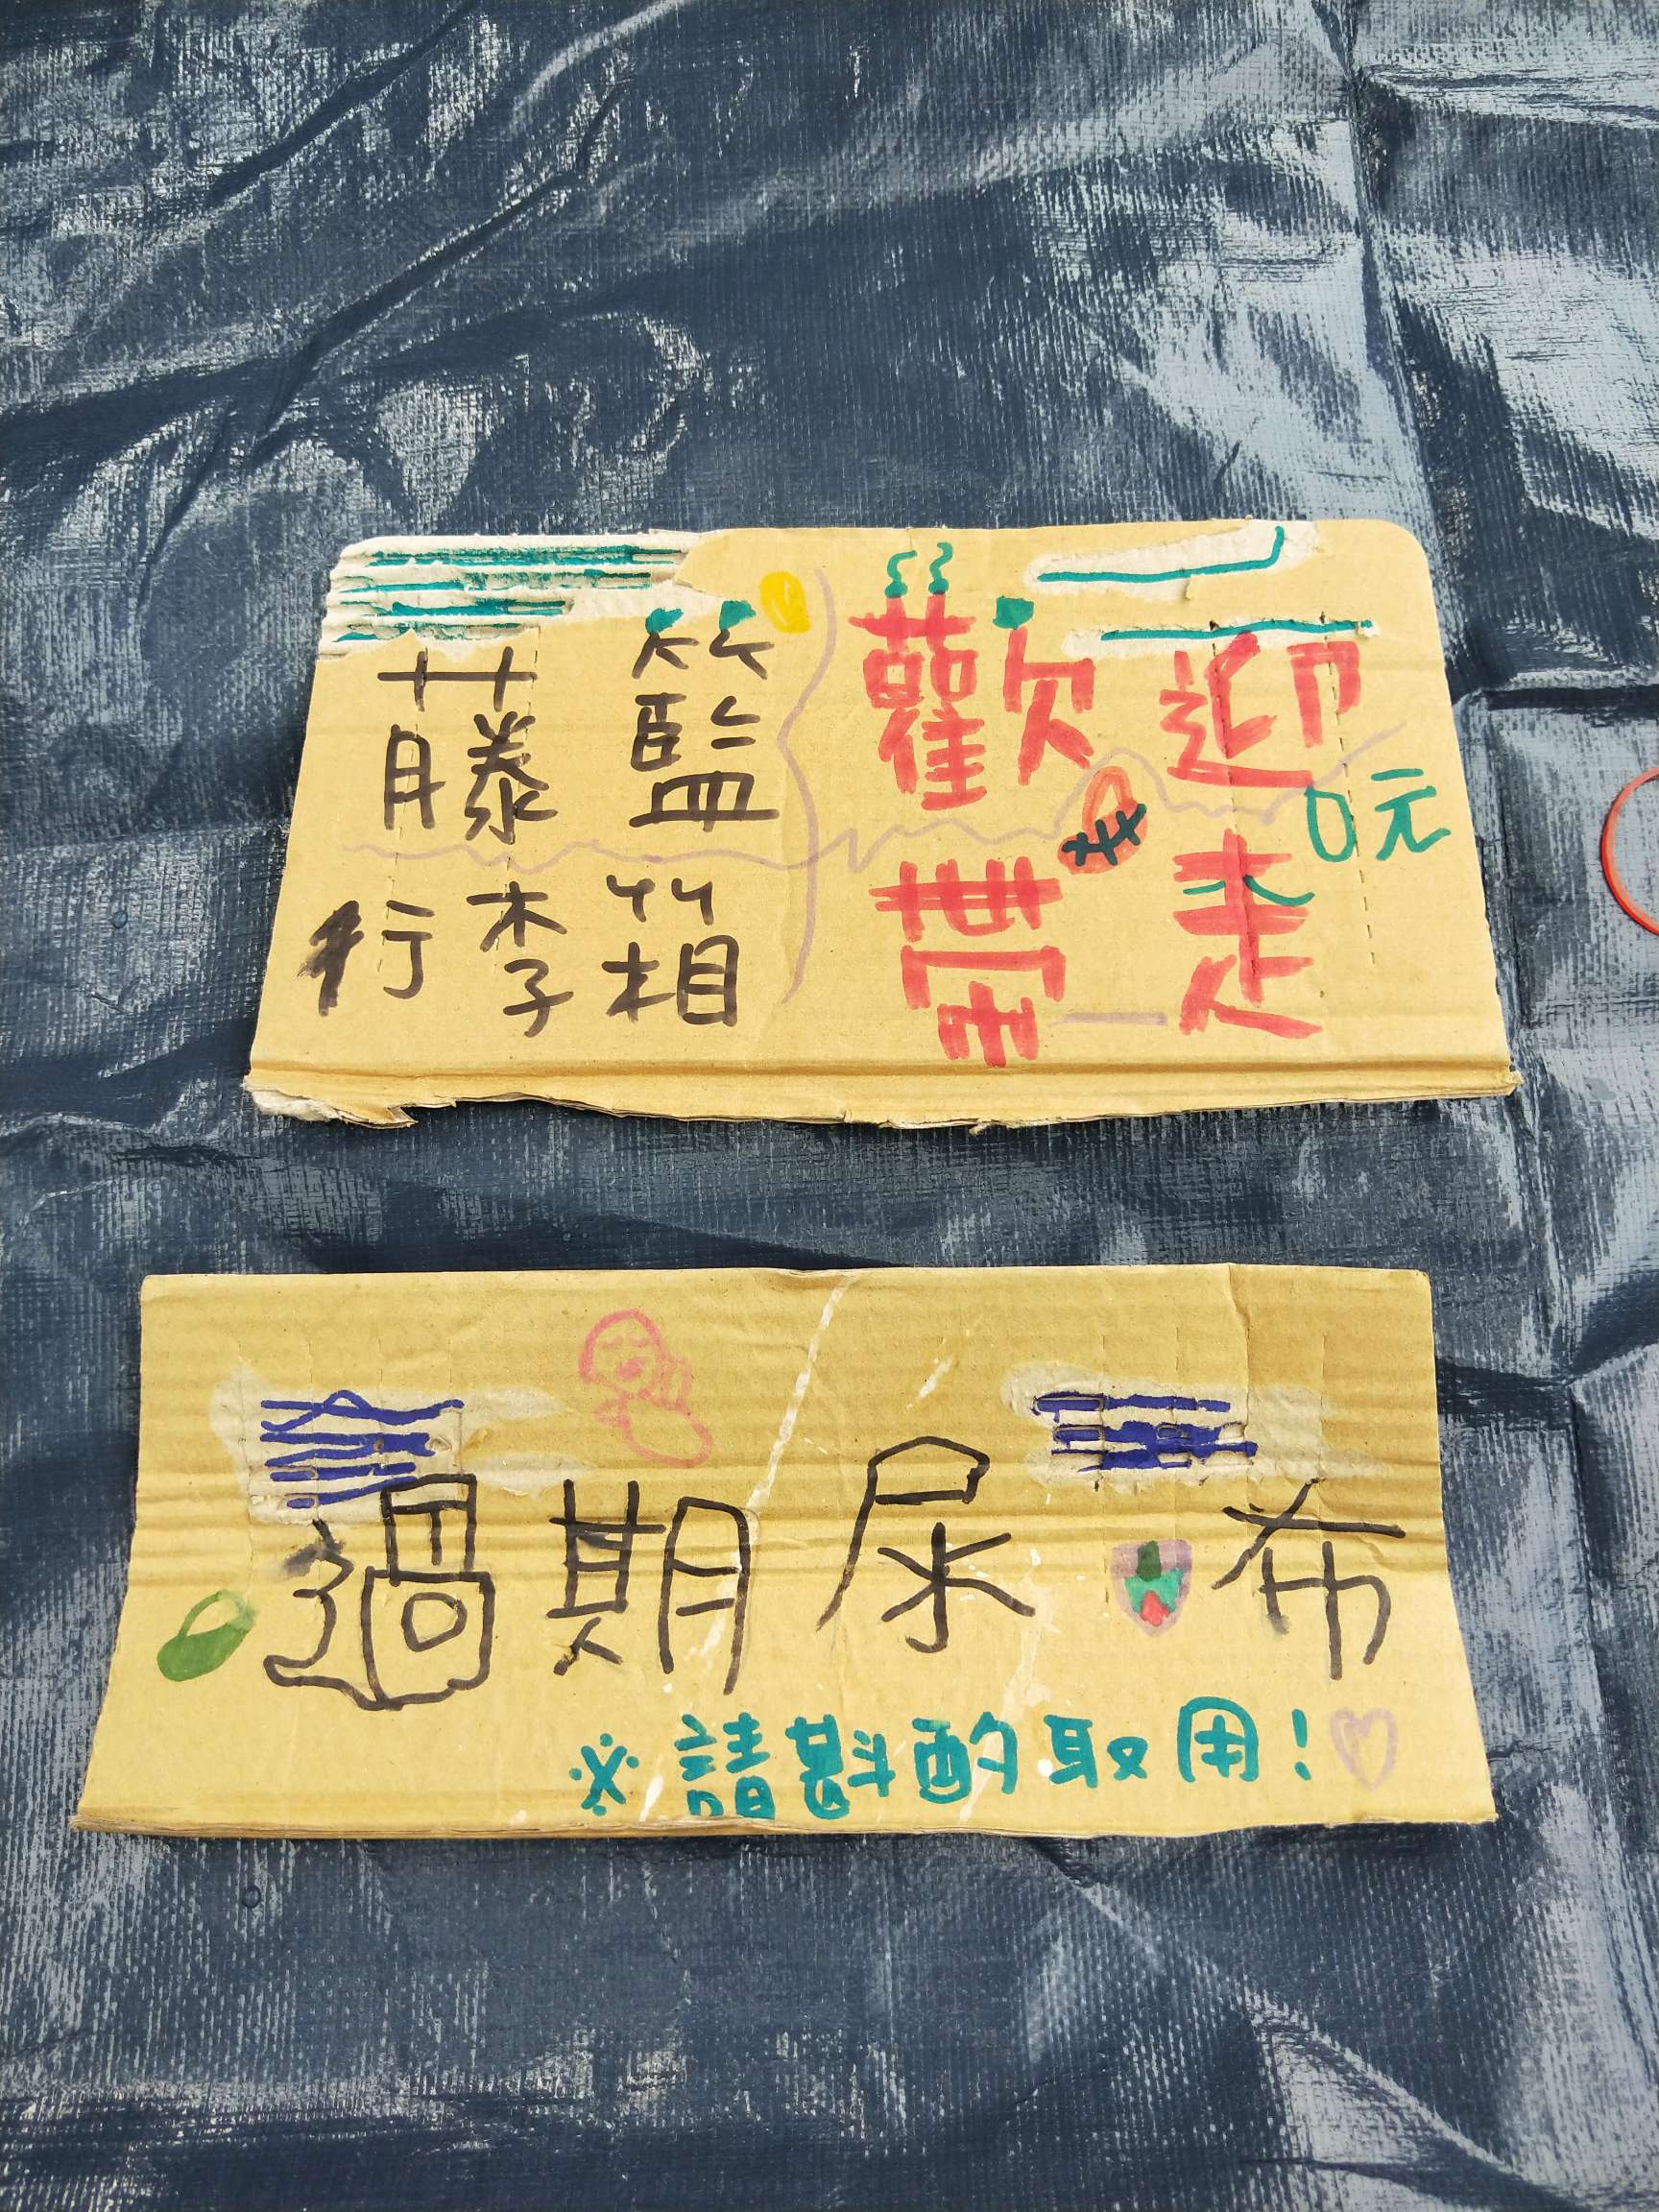 藤籃
行李箱
歡迎
帶走
0元
過期尿布
※請斟酌取用!